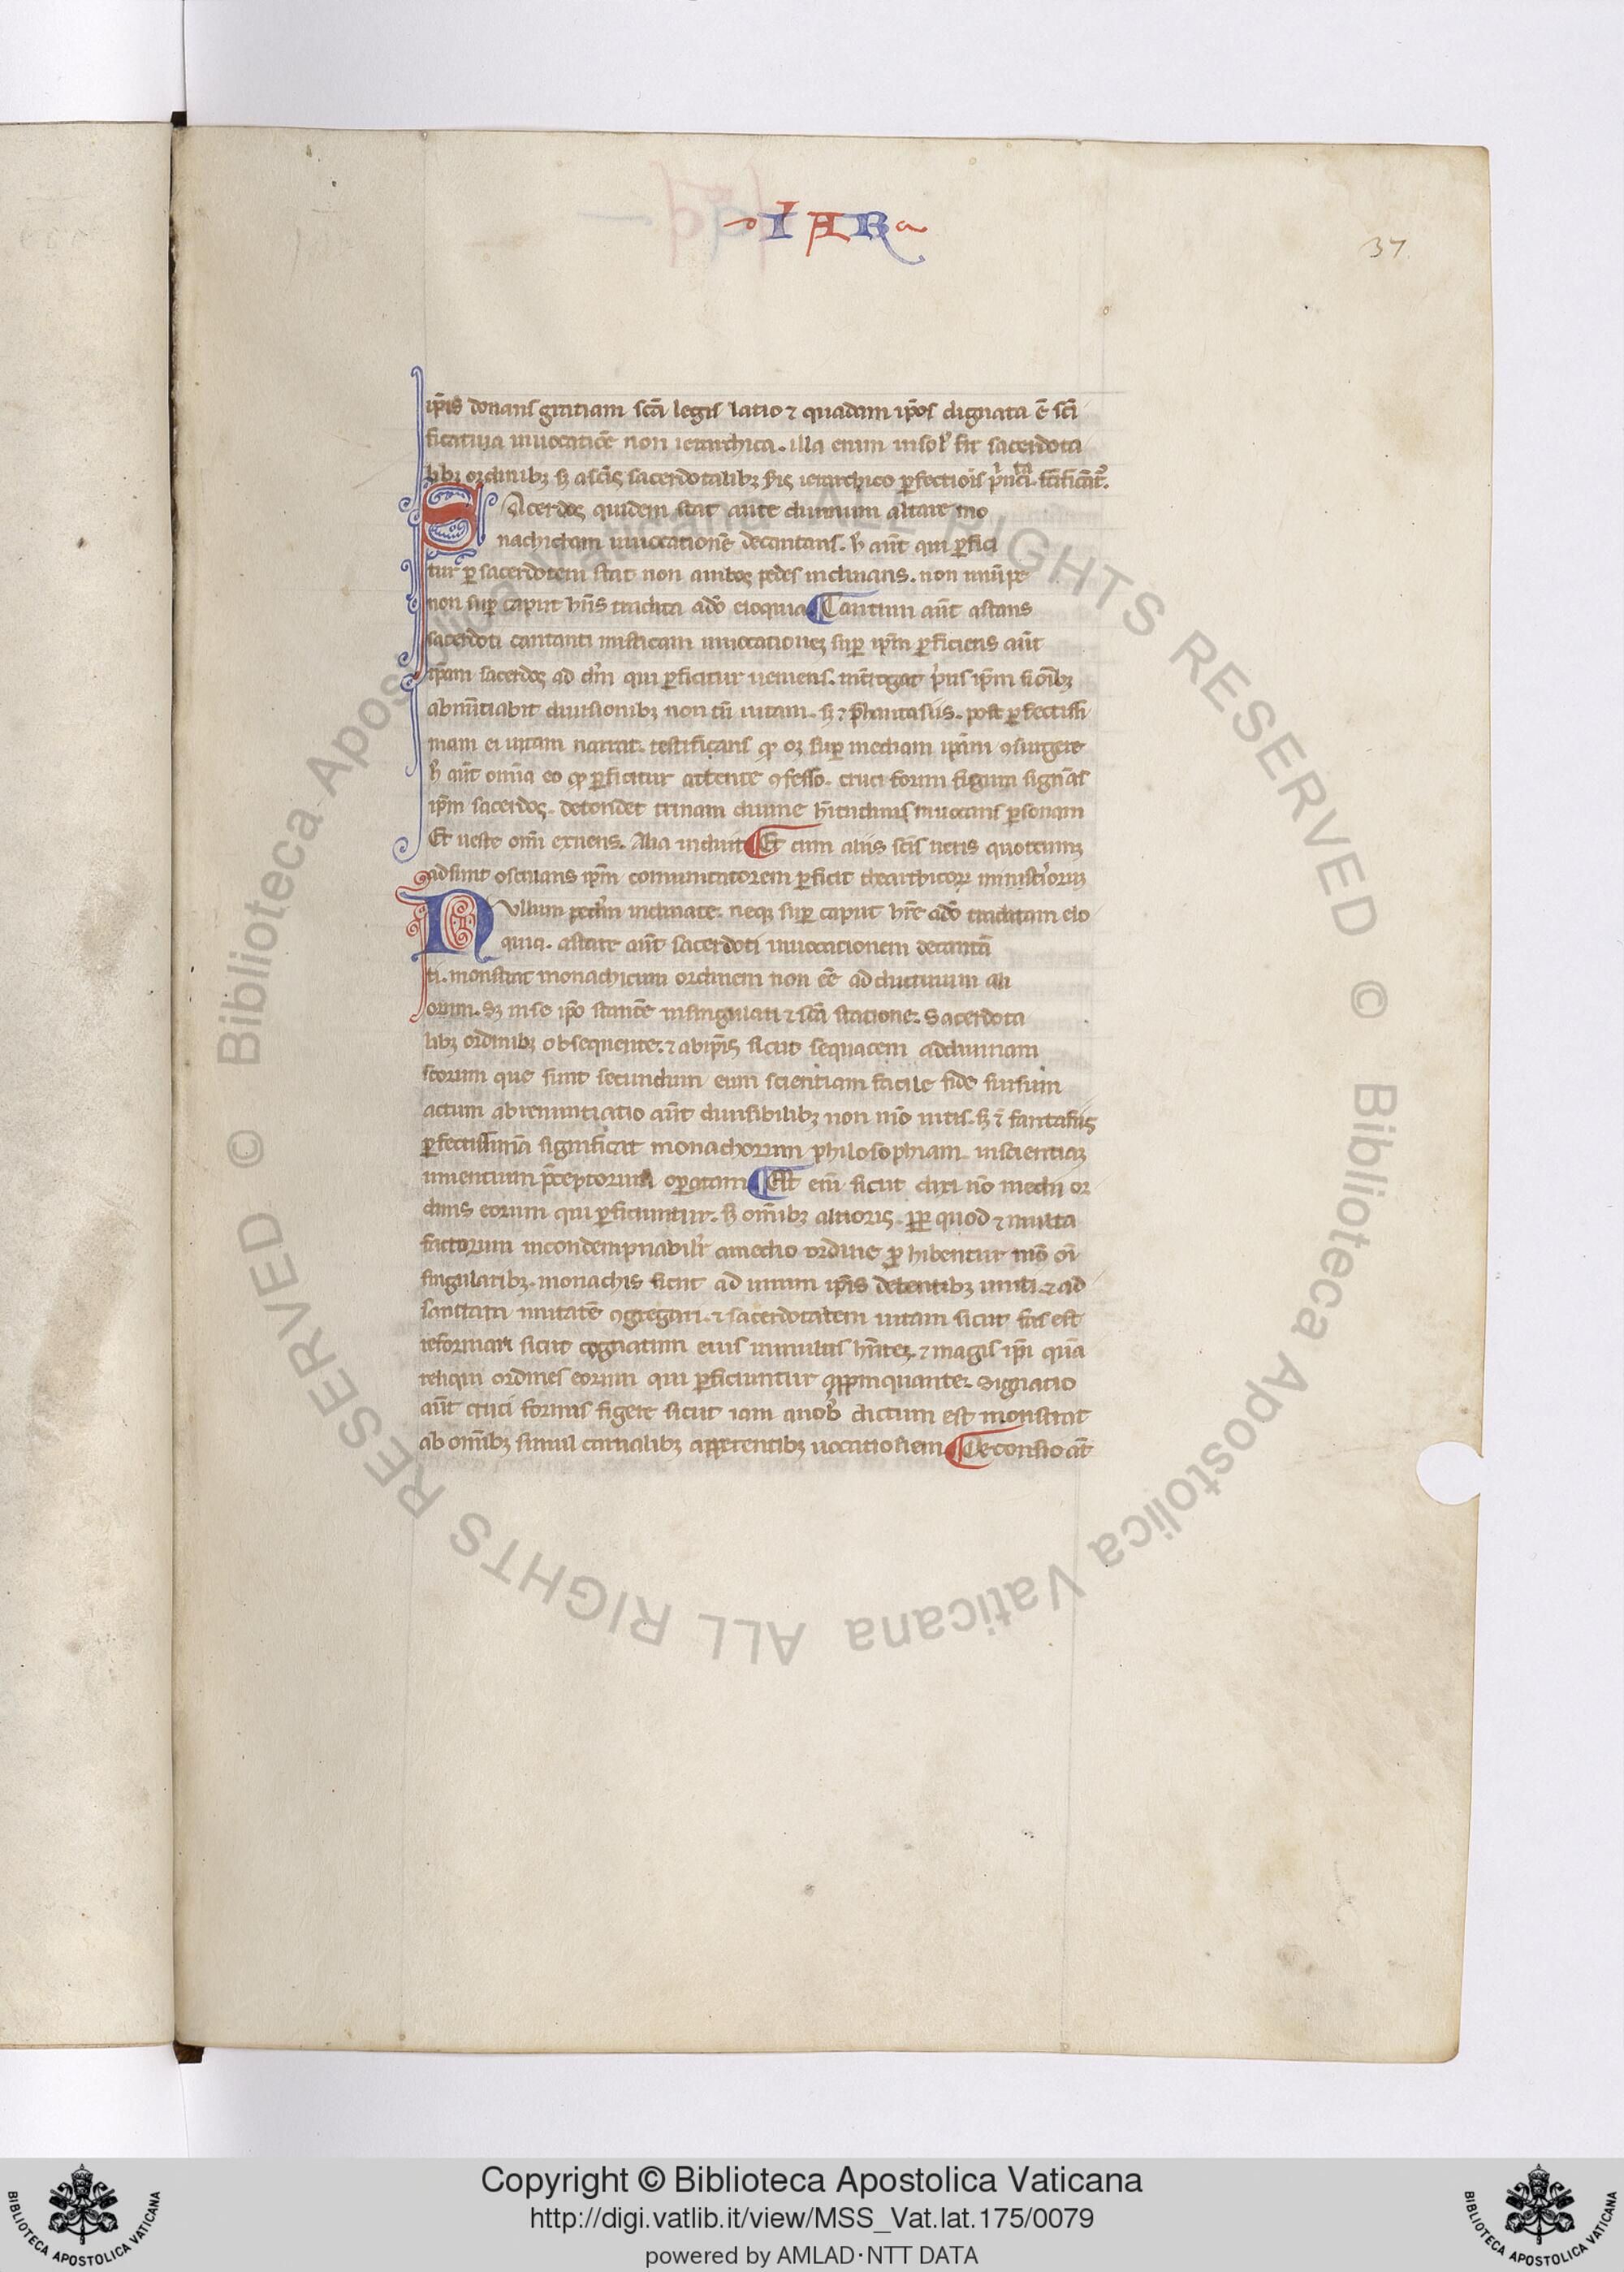 IAR
37
ip̃is donans gratiam sc̃a legis latio ⁊ quadam ip̃os dignata ē sc̃i
ficatiua inuocatiōe non ierarchica. illa enim in sol' fit sacerdota
Acerdos quidem stat ante diuinum altare mo
nachicham inuocationē decantans. h̄ aūt qui ꝑfici
tur ꝑ sacerdotem stat non ambos pedes inclinans. non
non suꝑ caput hñs tradita a dō eloquia Tantum aūt astans
sacerdoti cantanti misticam inuocationeꝫ suꝑ ip̃m ꝑficiens aūt
ip̃am sacerdos ad eum qui ꝑficitur ueniens. int̃rogat p'us ip̃m si oībꝫ
abnūtiabit diuisionibꝫ non tm̄ uitam. sꝫ ⁊ phantasiis. post ꝑfectissi
mam ei uitam narrat. testificans ꝙ oꝫ suꝑ mediam ip̃am ꝯsurgere
h̄ aūt omīa eo ꝙ ꝑficitur attente ꝯfesso. cruci forum figura signās
ip̃m sacerdos. detondet trinam diuine inuocans ꝑsonam
Et ueste omī exuens. Alia induit Et cum aliis sc̃is ueris quotcumqꝫ
adsunt osculans ip̃m comunicatorem ꝑficit thearchicorꝫ minist'iorum
Nullum pedum inclinare. neqꝫ suꝑ caput hr̃e a dō traditam elo
quia. astare aūt sacerdoti inuocationem decantā
ti. monstrat monachicum ordinem non eē adductiuum ali
orum. Sꝫ in se ip̃o stantē in singulari ⁊ sc̃a statione. Sacerdota
libꝫ ordinibꝫ obsequente. ⁊ ab ip̃is sicut sequacem ad diuinam
scorum que sunt secundum eum scientiam facile fide sursum
actum abrenuntiatio aūt diuisibilibꝫ non mō uitis. sꝫ ⁊ fantasiis
ꝑfectissimā significat monachorum philosophiam in scientia
unientium p̃ceptorum oꝑatam Est eni sicut dixi nō medii or
dinis eorum qui ꝑficiuntur. sꝫ omībꝫ altioris. ꝓꝑ quod ⁊ multa
factorum incondempnabilr̃ a medio ordine ꝓhibentur mō oī
singularibꝫ. monachis sicut ad unum ip̃is debentibꝫ uniri. ⁊ ad
sanctam unitatē ꝯgregari. ⁊ sacerdotalem uitam sicut fas est
reformari sicut cognatum eius in multis hñtes. ⁊ magis ip̃i quā
reliqui ordines eorum qui ꝑficiuntur appropinquante. Signatio
aūt cruci formis figere sicut iam a nob' dictum est monstrat
ab omībꝫ simul carnalibꝫ appetentibꝫ uocationem De tonsio aūt
Copyright © Biblioteca Apostolica Vaticana
http://digi.vatlib.it/view/MSS_Vat.lat.175/0079
powered by AMLAD·NTT DATA
BIBLIOTECA APOSTOLICA VATICANA
BIBLIOTECA APOSTOLICA VATICANA
© Biblioteca Apostolica Vaticana ALL RIGHTS RESERVED
© Biblioteca Apostolica Vaticana ALL RIGHTS RESERVED